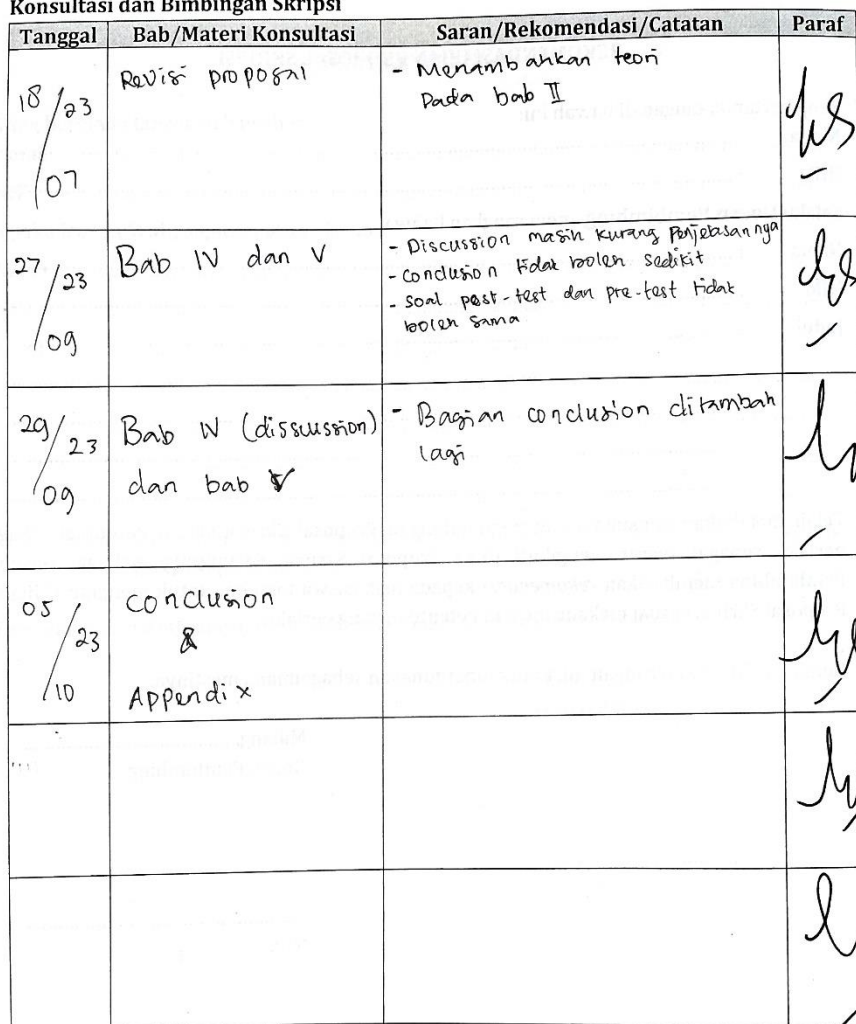 Konsultasi dan Bimbingan Skripsi
Tanggal Bab/Materi Konsultasi Saran/Rekomendasi/Catatan Paraf
18/07 23
Revisi proposal
- Menambahkan teori
Pada bab II
27/09 23
Bab IV dan V
- Discussion masih kurang Penjelasannya
- Conclusion tidak boleh sedikit
- Soal post-test dan pre-test tidak
boleh sama
29/09 23
Bab IV (disscussion)
dan bab V
- Bagian conclusion ditambah
lagi
05/10 23
Conclusion
&
Appendix